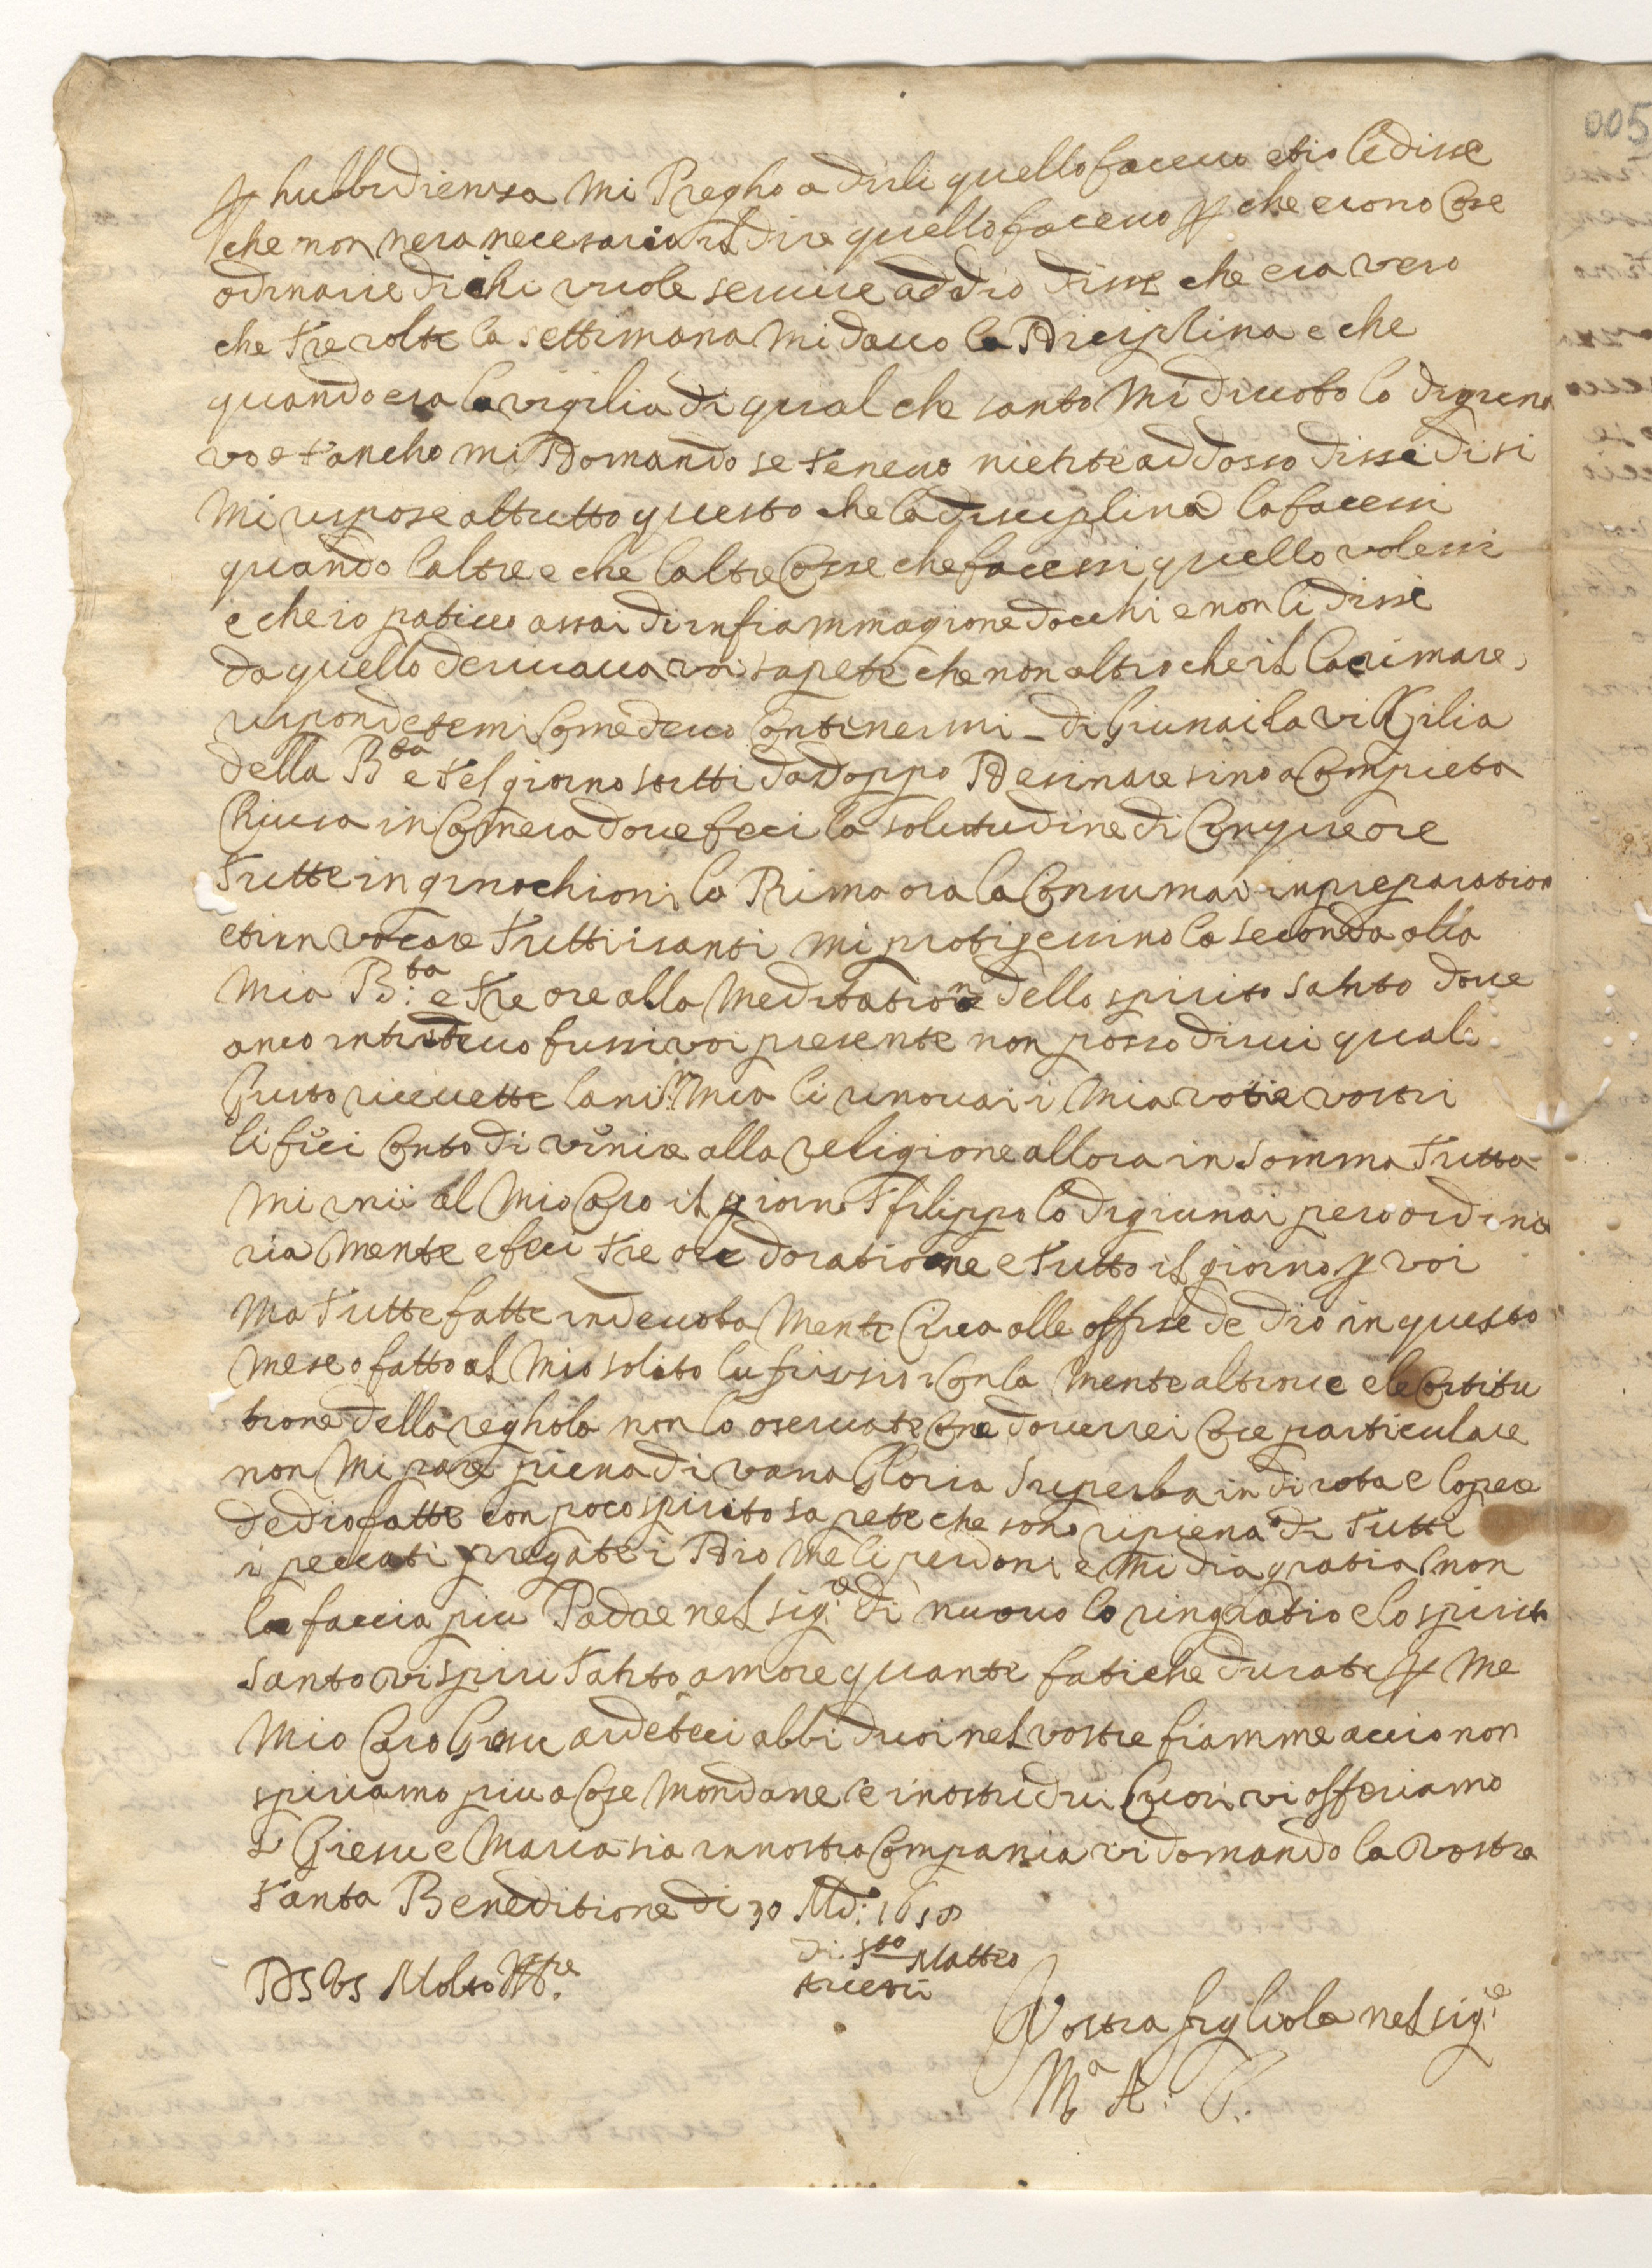 005
p hubbidiensa mi Pregho a dirli quello faceuo et io le disse
che non nera necesario il dire quello faceuo p che erono Cose
odinarie di chi vuole seruire ad dio disse che era vero
che tre volte la settimana mi dauo la Diciplina e che
quando era la vigilia di qual che santo mi diuoto lo digiuna
vo et ancho mi Domando se teneuo niente addosso disse di si
mi rispose al tutto questo che la disciplina la facessi
quando laltre e che laltre Cosse che facessi quello volessi
e che io patiuo assai di infiammagione docchi e non li disse
da quello deriuaua voi sapete che non altro che il lacrimare
rispondetemi Come deuo Contenermi - di Giunai la viGilia
della B.ta e tel giorno stetti da doppo Desinare sino a Compieta
Chiusa in Camera doue feci la solitudine di Cinque ore
Tutte in ginochioni la Prima ora la Consumai in preparation
et in vocare Tutti i santi mi protigessino la seconda alla
mia B.ta e tre ore alla meditatione dello spirito santo doue
anco fussi voi presente non posso dirui qual
Gusto riceuette lani.m mia li rinouai i mia voti e vostri
li feci Conto di venire alla religione allora in somma Tutta
mi unii al mio Caro il giorno S filippo lo digiunai pero ordina
ria mente e feci tre ore doratione e tutto il giorno p voi
ma tutte fatte indeuota mente Circa alle offese de dio in questo
mese o fatto al mio solito Con la mente altroue e le Costitu
tione della reghola non lo oseruate Come douerrei Cose particulare
non mi pare piena di vana Gloria Superba in di uota e lopere
de dio fatte con poco spirito sapete che sono ripiena di Tutti
i peccati pregate i Dio me li perdoni e mi dia gratia non
le faccia piu Padre nel sig.e di nuouo lo ringratio e lo spirito
santo vi spiri tanto amore quante fatiche durate p me
mio Caro Giesu ardeteci abbi duoi nel vostre fiamme accio non
spiriamo piu a Cose mondane e i nostri dui Cuori vi offeriamo
Giesu e Maria sia in nostra Compania vi domando la vostra
santa Beneditione di 30 M.o 1658
di: S.to Matteo
Arcetri
Ds Vs Molto R.re
Vostra figliola nel sig.re
M.a A: